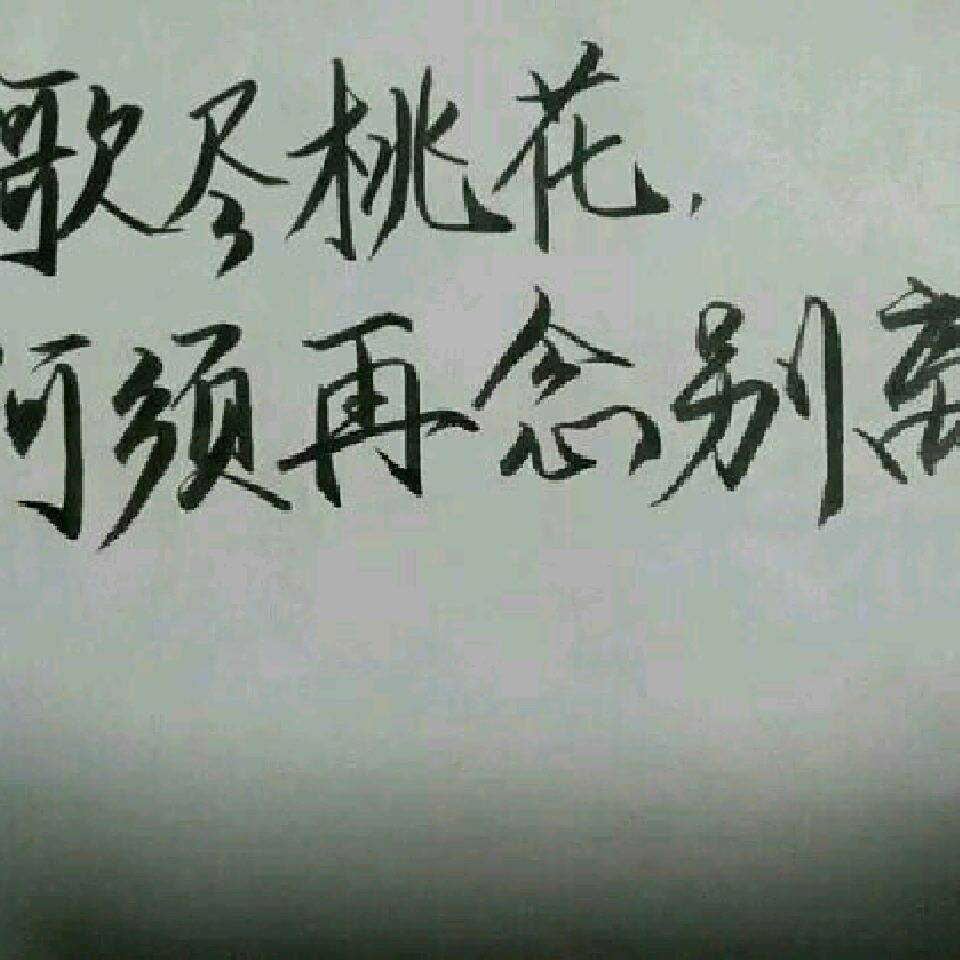 歌尽桃花，
何须再念别离